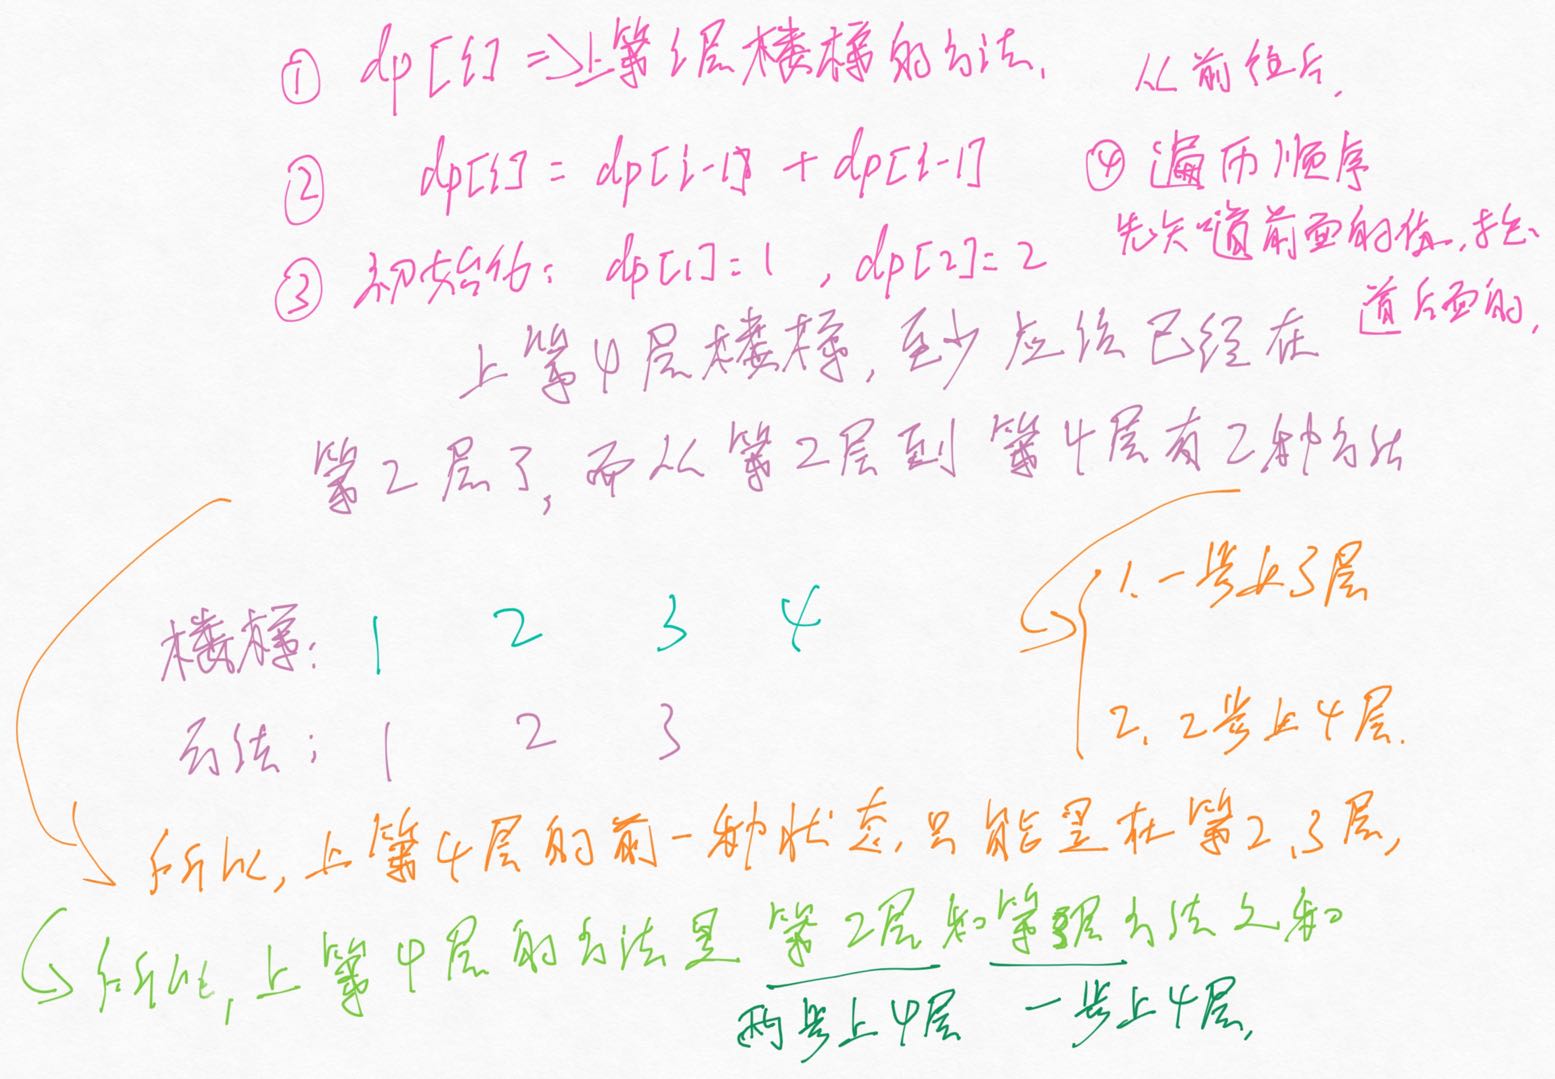 ① dp[i] => 上第i层楼梯的方法.
② dp[i] = dp[i-1] + dp[i-1]
③ 初始化: dp[1]=1 , dp[2]=2
从前往后.
④ 遍历顺序
先知道前面的值,才知
道后面的.
上第4层楼梯, 至少应该已经在
第2层了, 而从第2层到第4层有2种方法
1. 一步上3层
2. 2步上4层.
楼梯: 1 2 3 4
方法: 1 2 3
所以, 上第4层的前一种状态, 只能是在第2,3层,
所以, 上第4层的方法是 第2层和第3层方法之和
两步上4层 一步上4层,